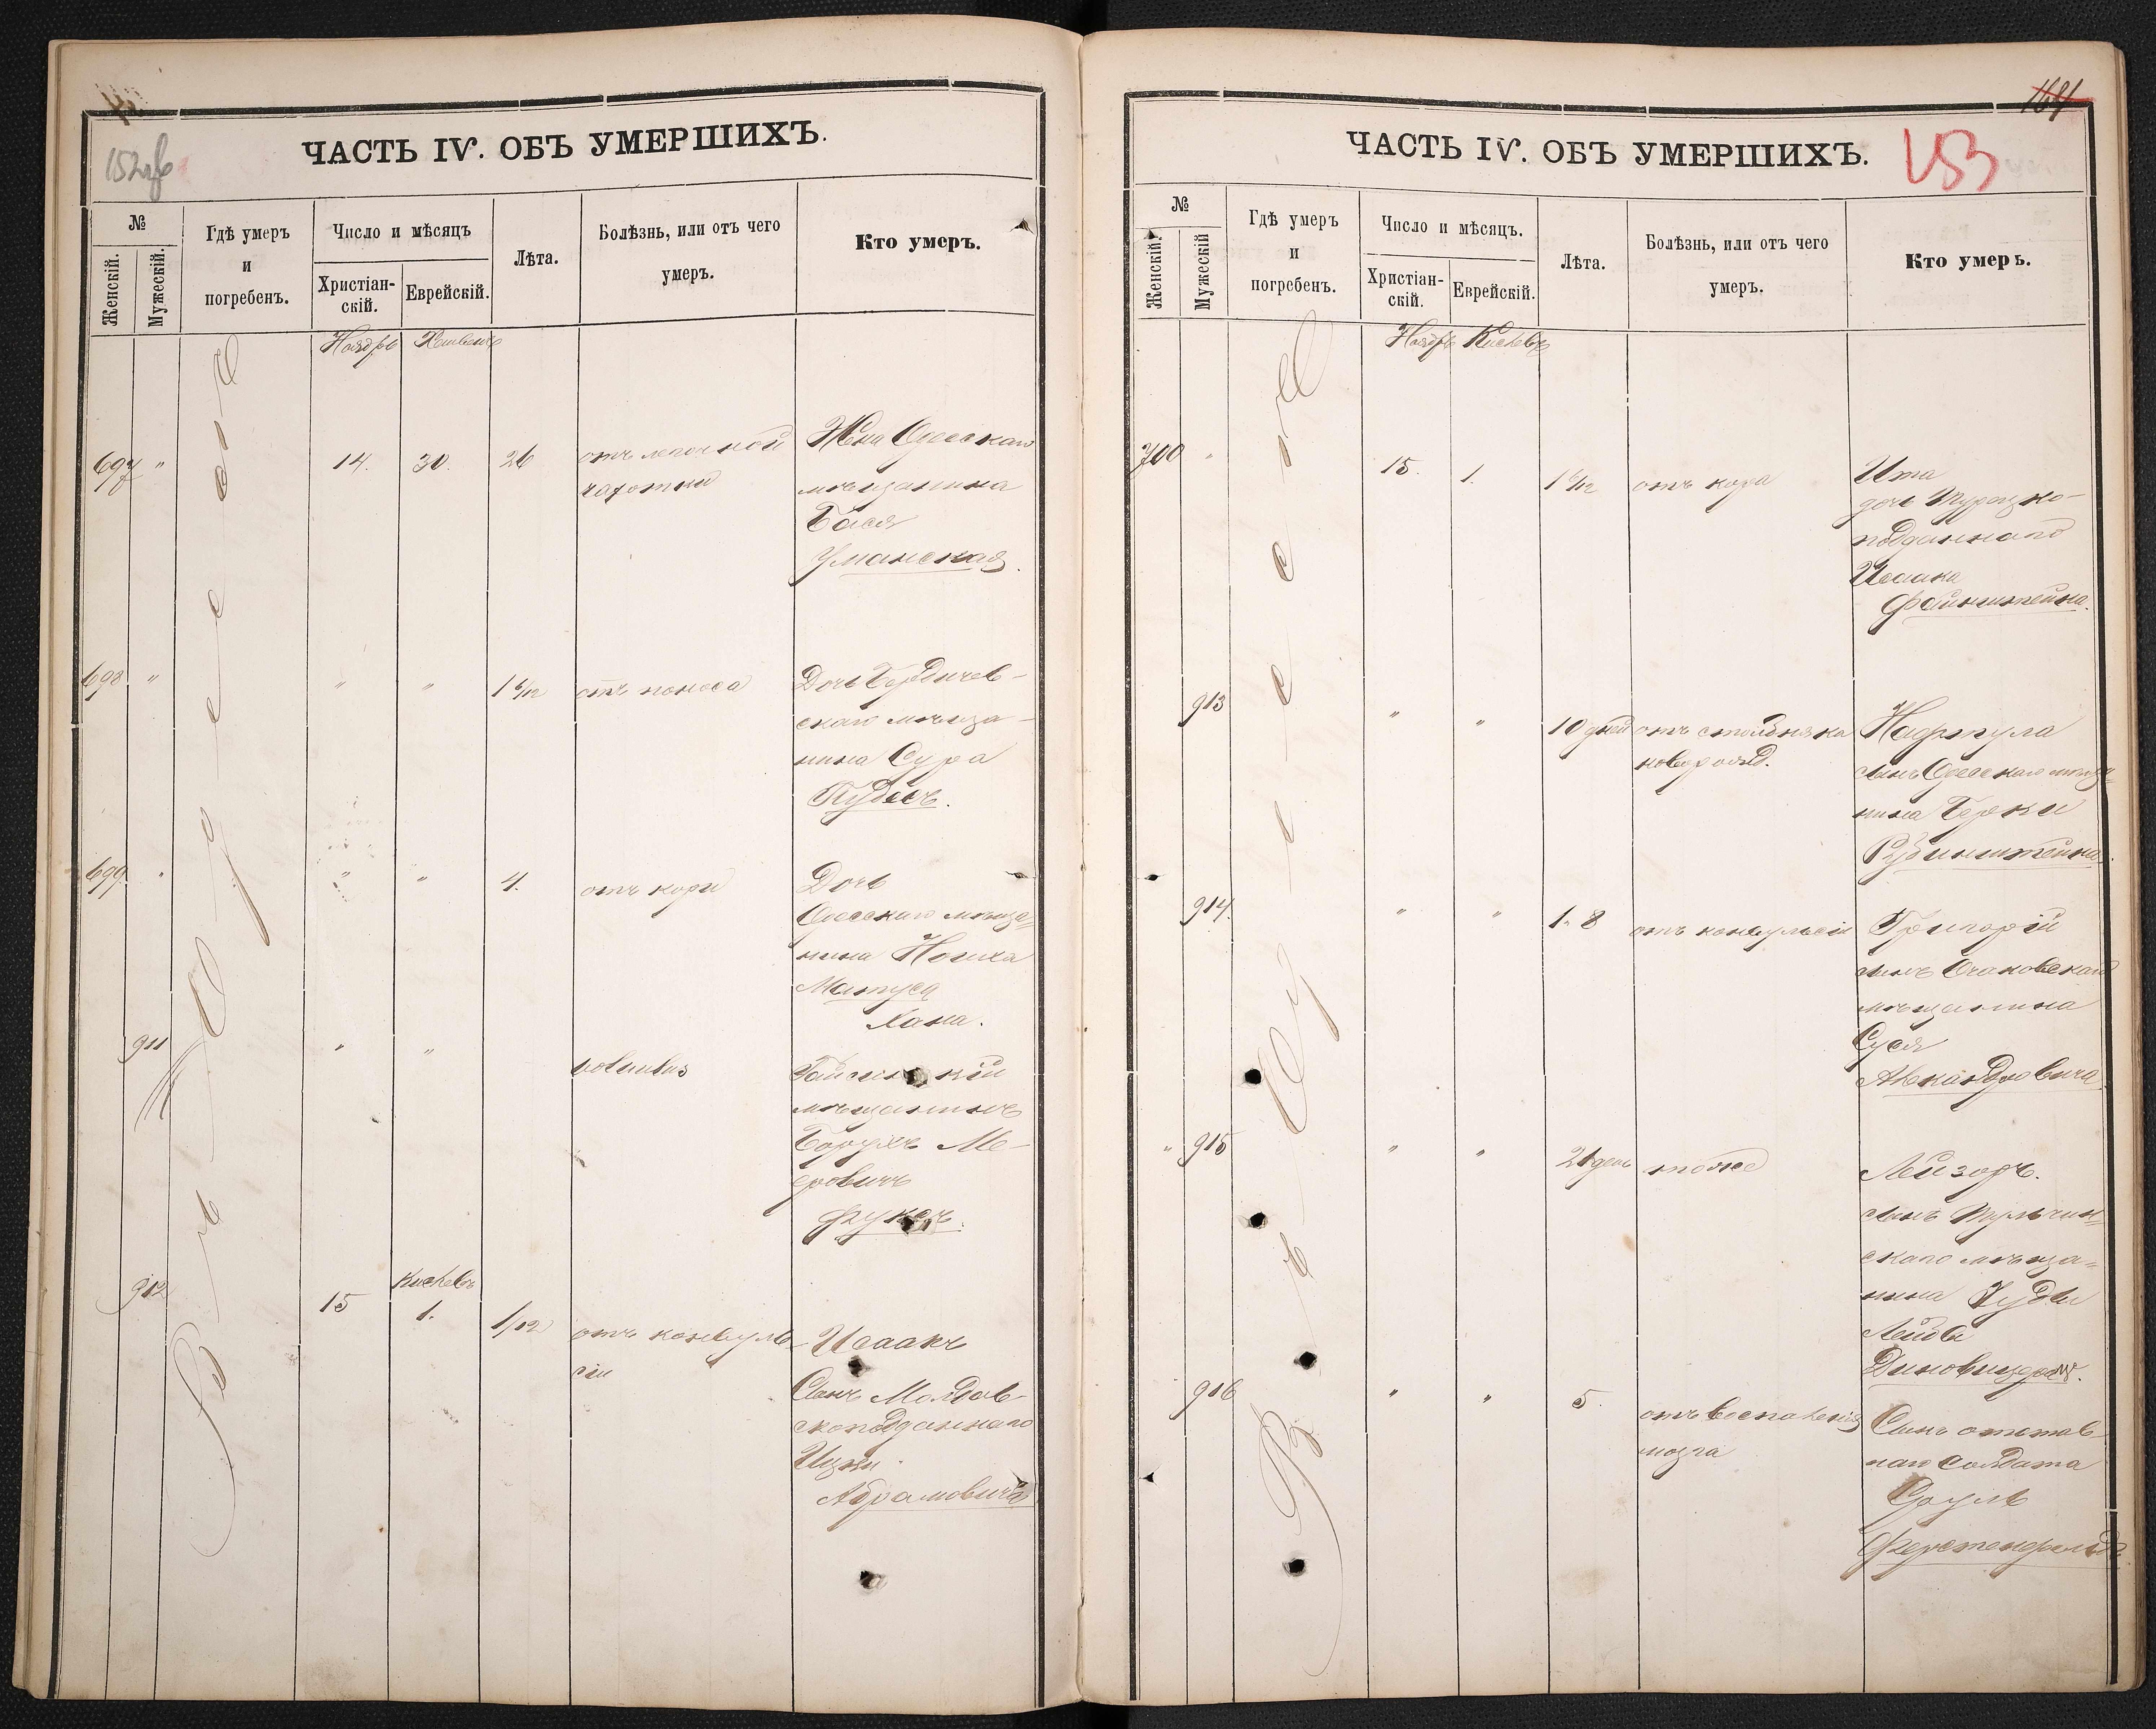 152 об
ЧАСТЬ IV. ОБЪ УМЕРШИХЪ.
№
Женскій.
Мужескій.
Гдѣ умеръ
и
погребенъ.
Число и мѣсяцъ
Христіан-
скій.
Еврейскій.
Лѣта.
Болѣзнь, или отъ чего
умеръ.
Кто умеръ.
Въ Одессѣ
Ноябрь
697 " 14. 30. 26
отъ легочной
чахотки
Жена Одесскаго
мѣщанина
Бася
Уманская.
698 " " " 1 6/12 отъ поноса
Дочь Бердичев-
скаго мѣща-
нина Сура
699 " " " 4. отъ кори
Дочь
Одесскаго мѣща=
нина
Матуса
Хана.
911 " "
мѣщанинъ
Борухъ Ме-
еровичъ
Фуксъ.
912 15 Кислевъ
1. 1/12 отъ конвуль-
сіи
Исаакъ
Сынъ Молдав-
скоподданнаго
Ицки
Абрамовича
164
153
ЧАСТЬ IV. ОБЪ УМЕРШИХЪ.
№
Женскій.
Мужескій
Гдѣ умеръ
и
погребенъ.
Число и мѣсяцъ.
Христіан-
скій.
Еврейскій.
Лѣта.
Болѣзнь, или отъ чего
умеръ.
Кто умеръ.
Въ Одессѣ
Ноябрь Кислевъ
700 " 15. 1. отъ кора
Ита
дочь Турецко-
подданнаго
Исаака
Файнштейна.
913 " " 10 дней отъ столбняка
новорожд.
Нафтула
сынъ Одесскаго мѣща=
нина Берки
Рубинштейна.
914. " " 1. 8 отъ конвульсіи
Григорій
сынъ Очаковскаго
мѣщанина
Суся
" 915 " " 21 день тоже
Лейзоръ.
сынъ Тульчин=
скаго мѣща=
нина Іудки
Лейбы
916 " " 5. отъ воспаленія
мозга
Сынъ отстав-
наго солдата
Сруль